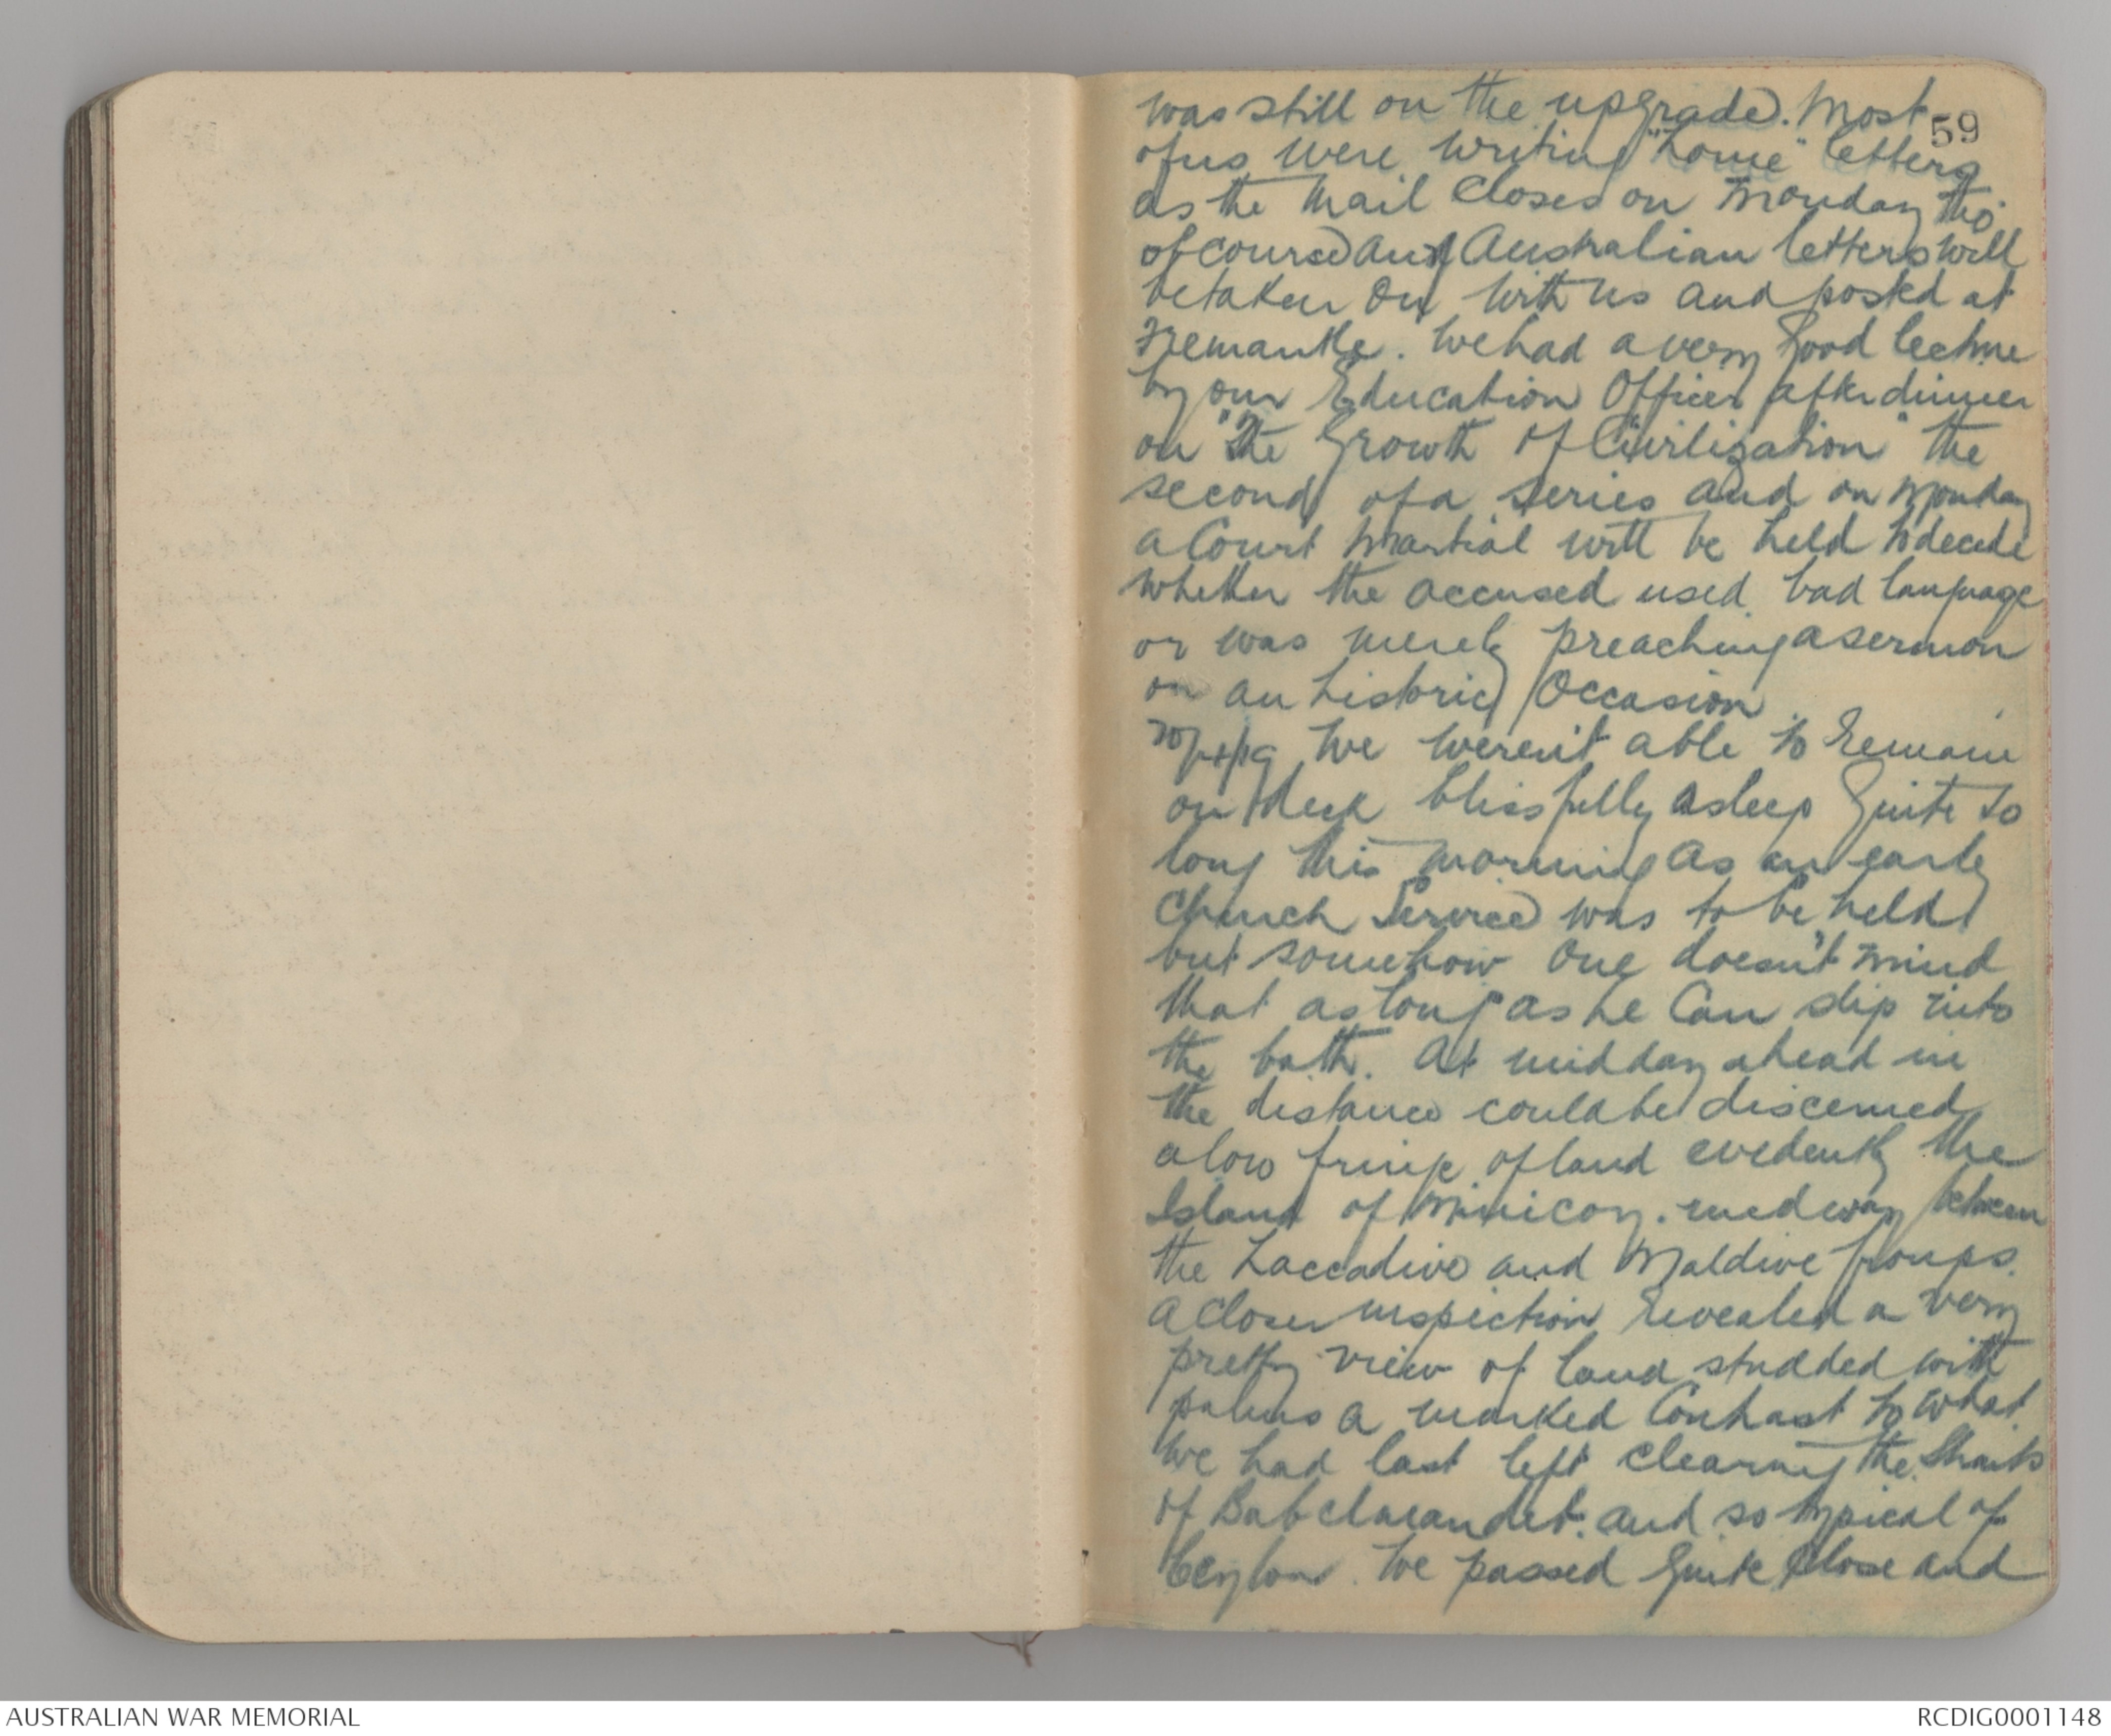 59
was still on the upgrade. Most
of us were writing "home" letters
as the mail closes on Monday tho'
of course any Australian letters will
be taken on with us and posted at
Fremantle. We had a very good lecture
by our Education Officer after dinner
on "The Growth of Civilization" the
second of a series and on Monday
a Court Martial will be held to decide
whether the accused used bad language
or was merely preaching a sermon
on an historic occasion.
We weren't able to remain
on deck blissfully asleep quite so
long this morning as an early
Church Service was to be held
but somehow one doesn't mind
that as long as he can slip into
the bath. At midday ahead in
the distance could be discerned
a low fringe of land evidently the
Island of Minicoy. midway between
the Laccadive and Maldive groups.
A closer inspection revealed a very
pretty view of land studded with
palms a marked contrast to what
we had last left clearing the Straits
of and so typical of
Ceylon. We passed quite close and
AUSTRALIAN WAR MEMORIAL
RCDIG0001148